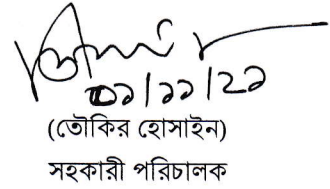 ০১/১১/২১
(তৌকির হোসাইন)
সহকারী পরিচালক